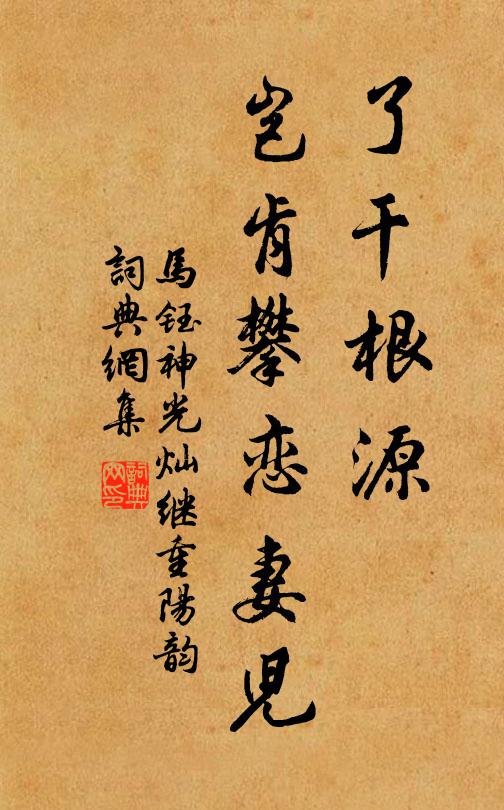 了干根源
岂肯攀恋妻児
馬钰神光灿继重陽韵
詞典網集
詞典網印